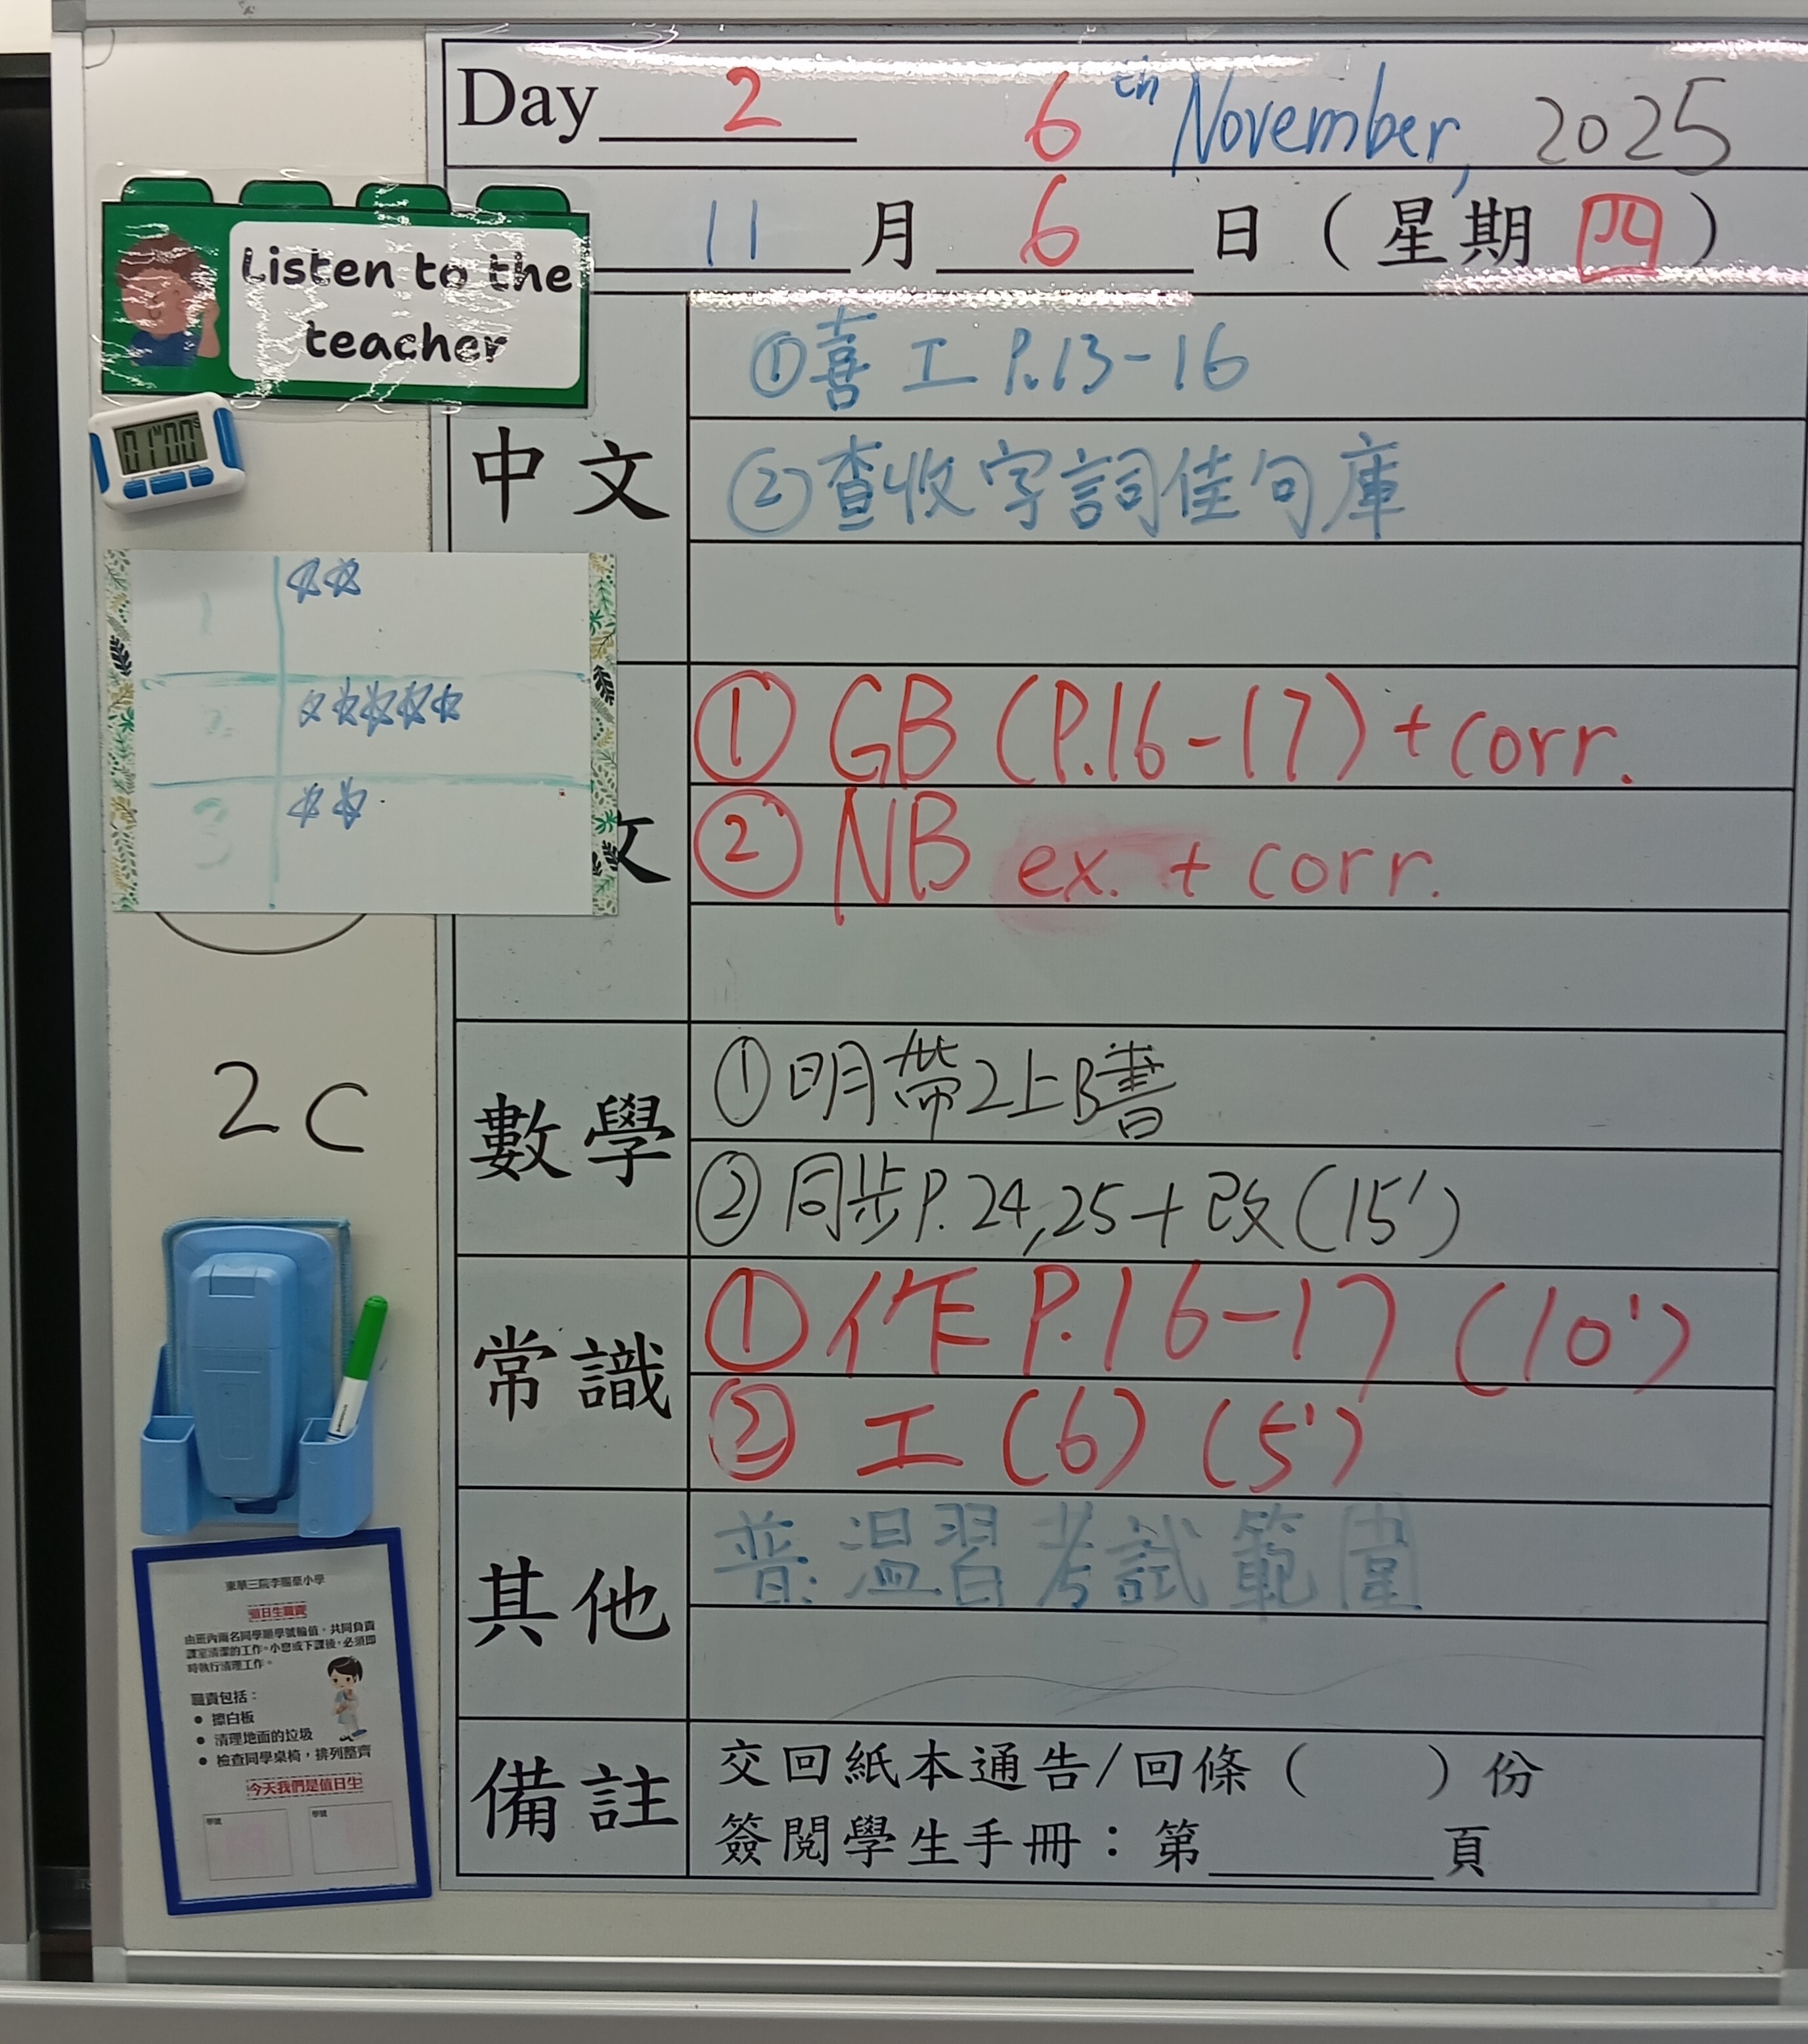 Day 2 6th November, 2025
11 月 6 日 (星期 四)
Listen to the
teacher
01 00
中文
①喜 工 P.13-16
②查收字詞佳句庫
1
2
3
文
① GB (P.16-17) + corr.
② NB ex. + corr.
2C
數學
①明帶2上B書
②同步P.24,25+改(15')
常識
①作 P.16-17 (10')
② 工 (6) (5')
其他
普:溫習考試範圍
備註
交回紙本通告/回條( )份
簽閱學生手冊:第 頁
東華三院李賜豪小學
值日生職責
由班內兩名同學順學號輪值,共同負責
課室清潔的工作。小息或下課後,必須即
時執行清理工作。
職責包括:
• 擦白板
• 清理地面的垃圾
• 檢查同學桌椅,排列整齊
今天我們是值日生
學號
學號